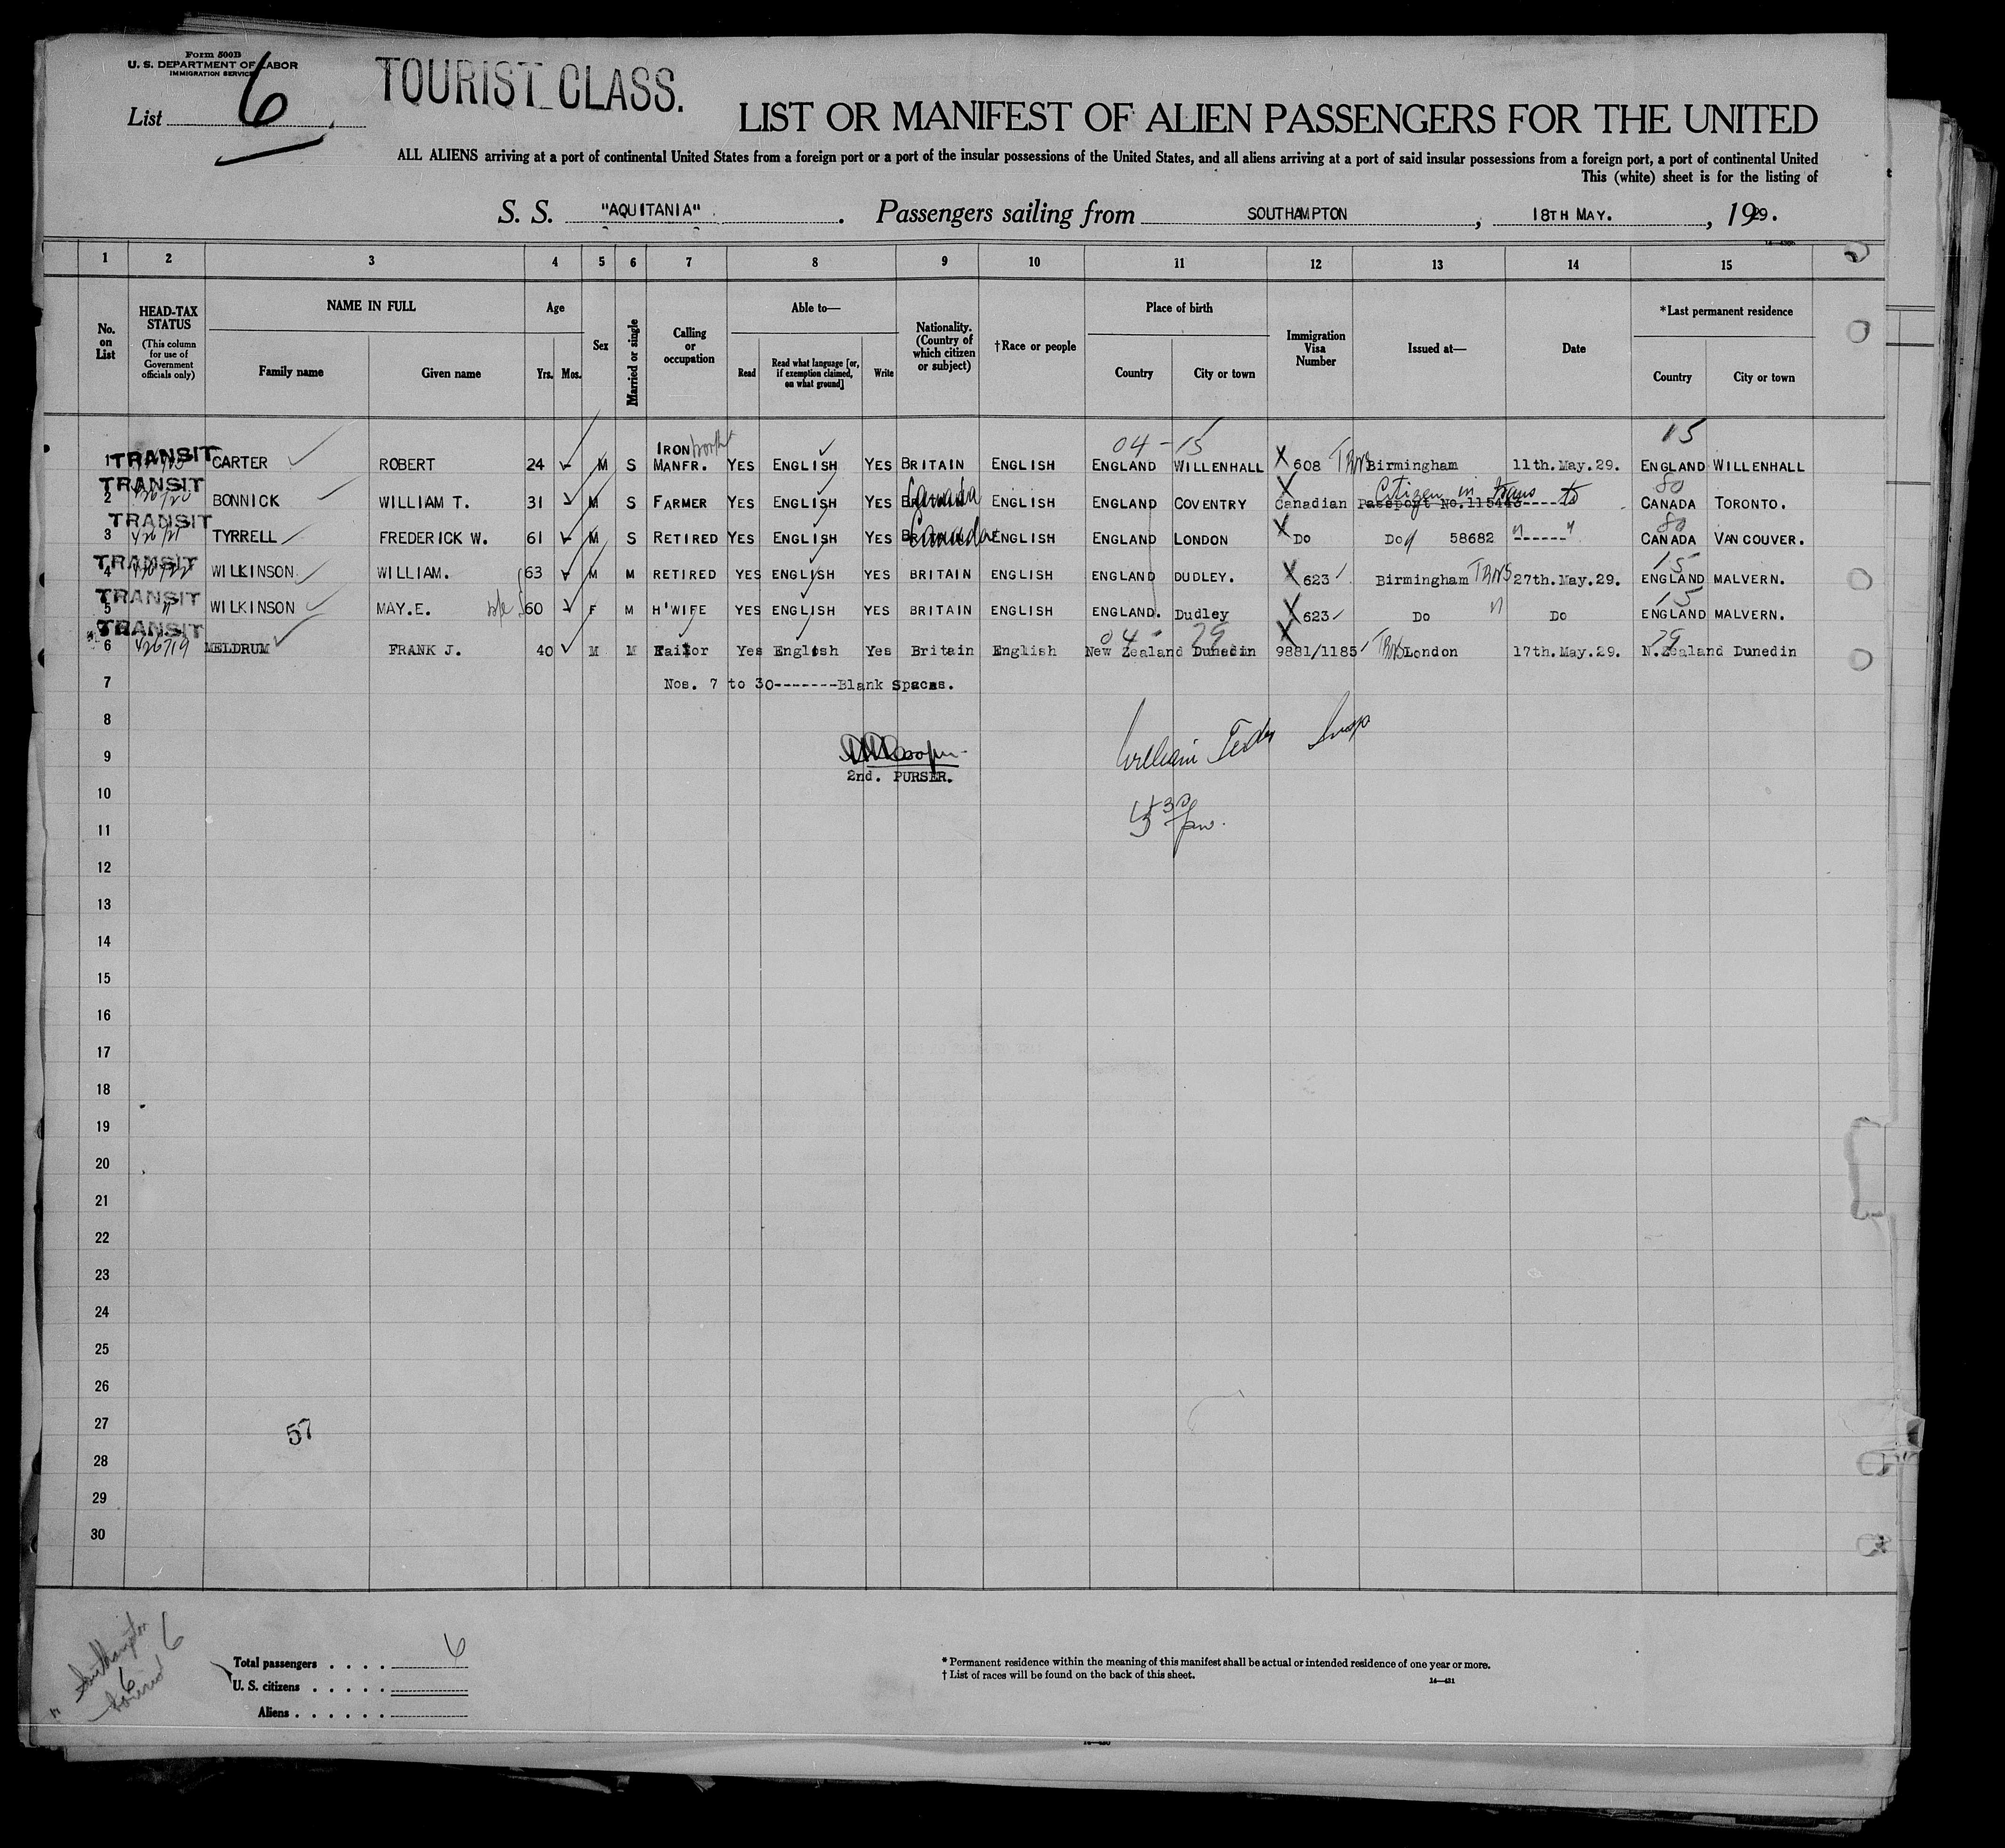 Form 500B
U. S. DEPARTMENT OF LABOR
IMMIGRATION SERVICE
List 6
TOURIST CLASS.
LIST OR MANIFEST OF ALIEN PASSENGERS FOR THE UNITED
ALL ALIENS arriving at a port of continental United States from a foreign port or a port of the insular possessions of the United States, and all aliens arriving at a port of said insular possessions from a foreign port, a port of continental United
This (white) sheet is for the listing of
S. S. "AQUITANIA" . Passengers sailing from SOUTHAMPTON , 18TH MAY. , 1929.
1 2 3 4 5 6 7 8 9 10 11 12 13 14 15
No. on List
HEAD-TAX STATUS
(This column for use of Government officials only)
NAME IN FULL
Family name Given name
Age
Yrs. Mos.
Sex
Married or single
Calling or occupation
Able to—
Read Read what language [or, if exemption claimed, on what ground] Write
Nationality. (Country of which citizen or subject)
†Race or people
Place of birth
Country City or town
Immigration Visa Number
Issued at—
Date
*Last permanent residence
Country City or town
04 - 15 15
1 TRANSIT CARTER ROBERT 24 M S IRON MANFR. YES ENGLISH YES BRITAIN ENGLISH ENGLAND WILLENHALL X 608 Birmingham 11th.May.29. ENGLAND WILLENHALL
2 TRANSIT BONNICK WILLIAM T. 31 M S FARMER YES ENGLISH YES Canada ENGLISH ENGLAND COVENTRY X Canadian Passport No.115443 Citizen in trans to 80 CANADA TORONTO.
3 TRANSIT TYRRELL FREDERICK W. 61 M S RETIRED YES ENGLISH YES Canada ENGLISH ENGLAND LONDON X Do Do 58682 ------ 80 CANADA VANCOUVER.
4 TRANSIT WILKINSON WILLIAM. 63 M M RETIRED YES ENGLISH YES BRITAIN ENGLISH ENGLAND DUDLEY. X 623 Birmingham 27th.May.29. 15 ENGLAND MALVERN.
5 TRANSIT " WILKINSON MAY.E. 60 F M H'WIFE YES ENGLISH YES BRITAIN ENGLISH ENGLAND. Dudley X 623 Do " Do 15 ENGLAND MALVERN.
04 - 29 X 29
6 TRANSIT 426719 MELDRUM FRANK J. 40 M M Tailor Yes English Yes Britain English New Zealand Dunedin 9881/1185 London 17th.May.29. N.Zealand Dunedin
7 Nos. 7 to 30-------Blank Spaces.
8
9 William Insp
2nd. PURSER.
10
11
12
13
14
15
16
17
18
19
20
21
22
23
24
25
26
27
57
28
29
30
Southampton 6
6
Total passengers . . . . 6
U. S. citizens . . . . .
Aliens . . . . . .
* Permanent residence within the meaning of this manifest shall be actual or intended residence of one year or more.
† List of races will be found on the back of this sheet.
14—431